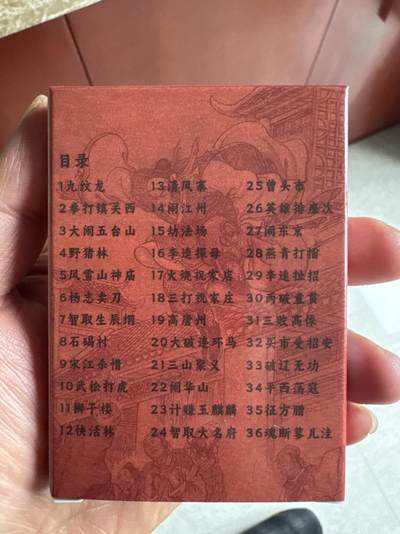 目录
1九纹龙
2拳打镇关西
3大闹五台山
4野猪林
5风雪山神庙
6杨志卖刀
7智取生辰纲
8石碣村
9宋江杀惜
10武松打虎
11狮子楼
12快活林
13清风寨
14闹江州
15劫法场
16李逵探母
17火烧祝家店
18三打祝家庄
19高唐州
20大破连环马
21三山聚义
22闹华山
23计赚玉麒麟
24智取大名府
25曾头市
26英雄排座次
27闹东京
28燕青打擂
29李逵扯诏
30两破童贯
31三败高俅
32买市受招安
33破辽无功
34平西荡寇
35征方腊
36魂断蓼儿洼